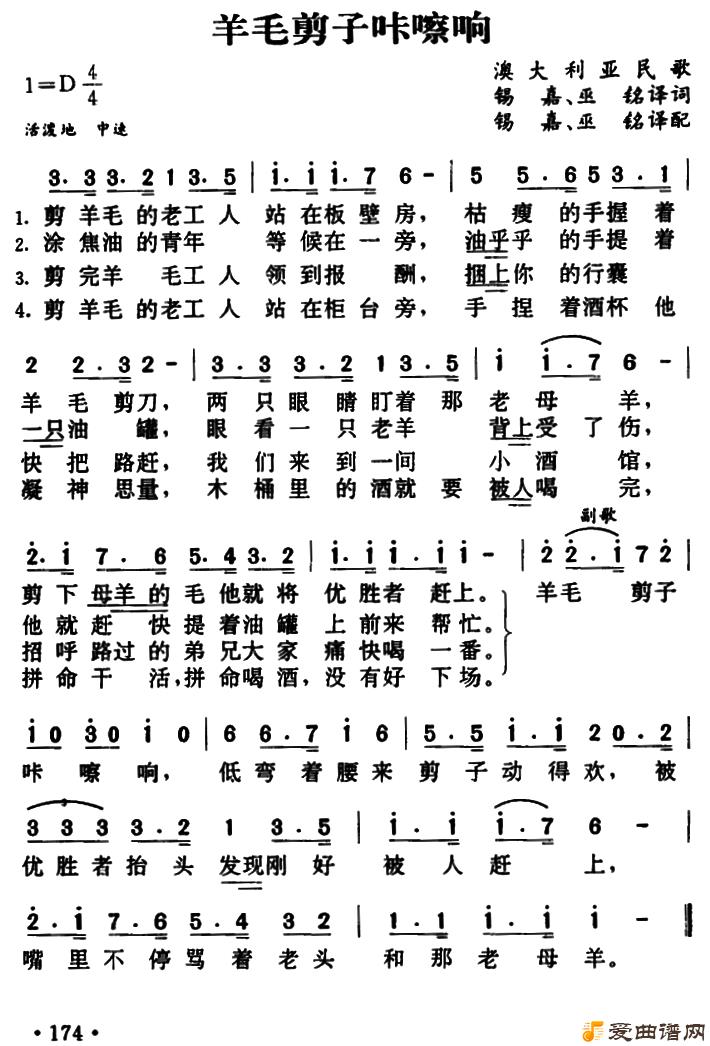 羊毛剪子咔嚓响
1=D 4/4
澳大利亚民歌
锡嘉、巫铭译词
锡嘉、巫铭译配
活泼地 中速
3·3 3·2 1 3·5 | i·i i·7 6 - | 5 5·6 5 3·1 |
1. 剪羊毛的老工人站在板壁房，枯瘦的手握着
2. 涂焦油的青年等候在一旁，油乎乎的手提着
3. 剪完羊毛工人领到报酬，捆上你的行囊
4. 剪羊毛的老工人站在柜台旁，手捏着酒杯他
2 2·3 2 - | 3·3 3·2 1 3·5 | i i·7 6 - |
羊毛剪刀，两只眼睛盯着那老母羊，
一只油罐，眼看一只老羊背上受了伤，
快把路赶，我们来到一间小酒馆，
凝神思量，木桶里的酒就要被人喝完，
副歌
2·i 7·6 5·4 3·2 | i·i i·i i - | 2 2·i 7 2 |
剪下母羊的毛他就将优胜者赶上。羊毛剪子
他就赶快提着油罐上前来帮忙。
招呼路过的弟兄大家痛快喝一番。
拼命干活，拼命喝酒，没有好下场。
i0 30 i 0 | 6 6·7 i 6 | 5·5 i·i 20·2 |
咔嚓响，低弯着腰来剪子动得欢，被
3
3 3 3 3·2 1 3·5 | i·i i·7 6 - |
优胜者抬头发现刚好被人赶上，
2·i 7·6 5·4 3 2 | 1·1 i·i i - ‖
嘴里不停骂着老头和那老母羊。
·174·
爱曲谱网